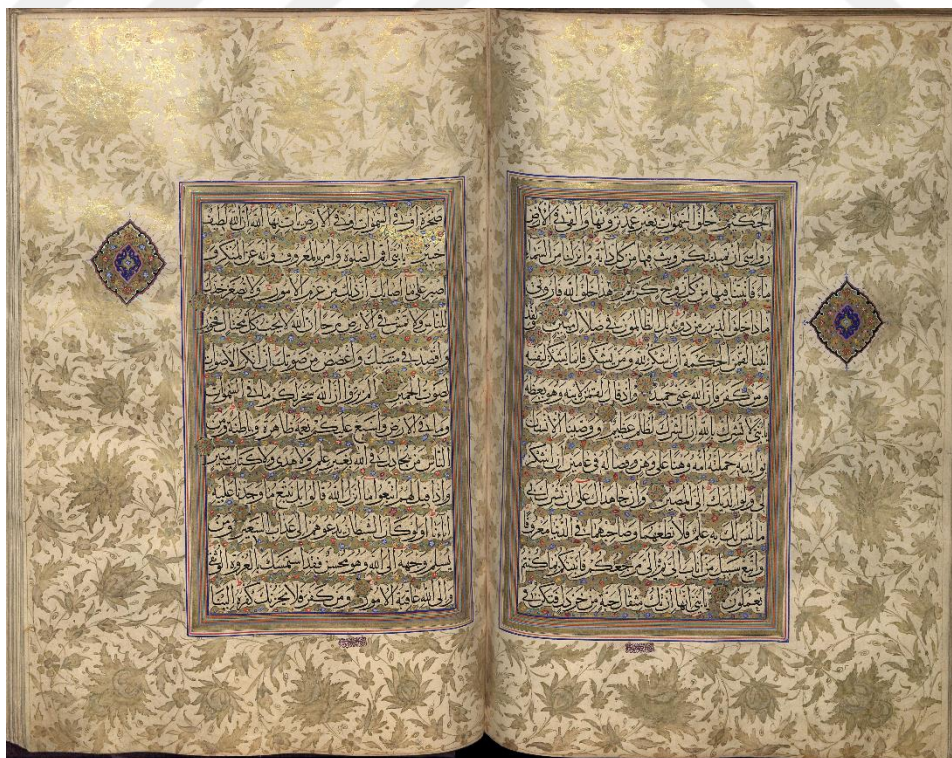 الحكيم خلق السموات بغير عمد ترونها والقى في الارض
رواسي ان تميد بكم وبث فيها من كل دابة وانزلنا من السماء
ماء فانبتنا فيها من كل زوج كريم هذا خلق الله فاروني
ماذا خلق الذين من دونه بل الظالمون في ضلال مبين ولقد
اتينا لقمن الحكمة ان اشكر لله ومن يشكر فانما يشكر لنفسه
ومن كفر فان الله غني حميد واذ قال لقمن لابنه وهو يعظه
يبني لا تشرك بالله ان الشرك لظلم عظيم ووصينا الانسان
بوالديه حملته امه وهنا على وهن وفصاله في عامين ان اشكر
لي ولوالديك الي المصير وان جاهداك على ان تشرك بي
ما ليس لك به علم فلا تطعهما وصاحبهما في الدنيا معروفا
واتبع سبيل من اناب الي ثم الي مرجعكم فانبئكم بما كنتم
تعملون يبني انها ان تك مثقال حبة من خردل فتكن في
صخرة او في السموات او في الارض يات بها الله ان الله لطيف
خبير يبني اقم الصلوة وامر بالمعروف وانه عن المنكر و
اصبر على ما اصابك ان ذلك من عزم الامور ولا تصعر خدك
للناس ولا تمش في الارض مرحا ان الله لا يحب كل مختال فخور
واقصد في مشيك واغضض من صوتك ان انكر الاصوات
لصوت الحمير الم تروا ان الله سخر لكم ما في السموات
وما في الارض واسبغ عليكم نعمه ظاهرة وباطنة ومن
الناس من يجادل في الله بغير علم ولا هدى ولا كتاب منير
واذا قيل لهم اتبعوا ما انزل الله قالوا بل نتبع ما وجدنا عليه
اباءنا اولو كان الشيطان يدعوهم الى عذاب السعير ومن
يسلم وجهه الى الله وهو محسن فقد استمسك بالعروة الوثقى
والى الله عاقبة الامور ومن كفر فلا يحزنك كفره الينا